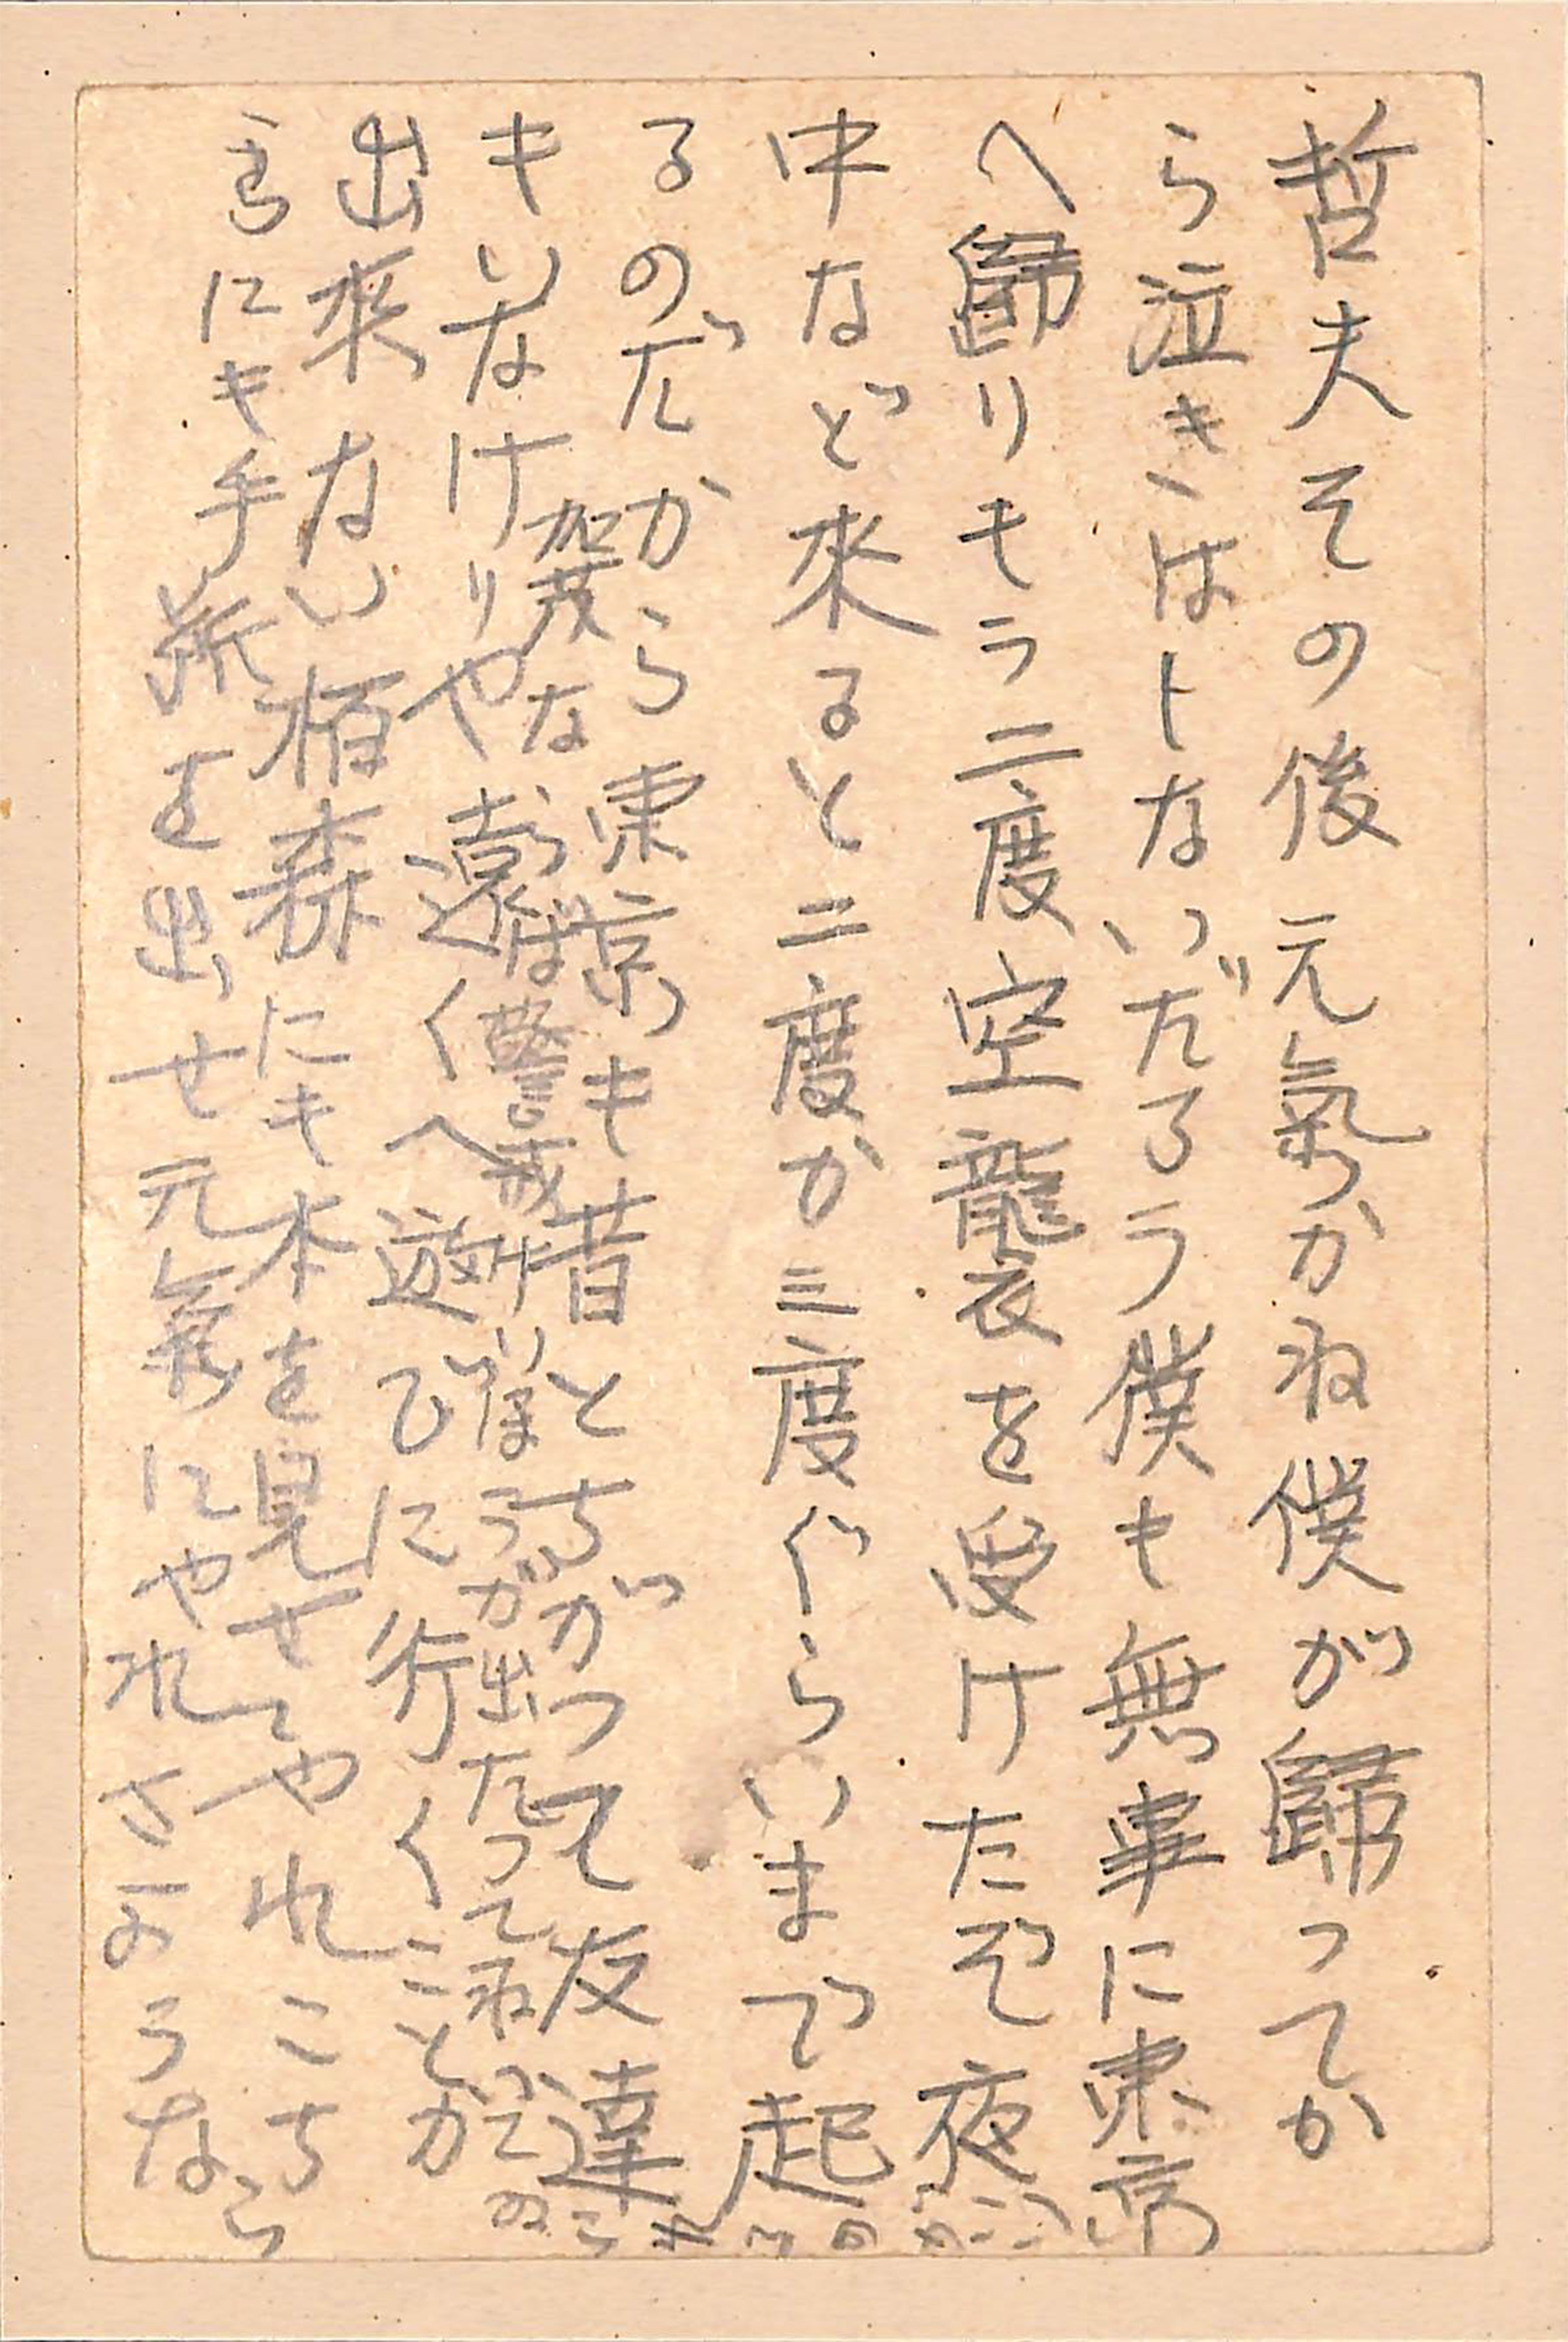 哲夫その後元氣かね僕が歸ってか
ら泣きはしないだろう僕も無事に東京
へ歸りもう二度空襲を受けたぞ夜
中など來ると二度か三度ぐらいまで起
るのだから東京も昔とちがつて友達
もいなけりや遠くへ遊びに行くことが
出來ない栢森にも本を見せてやれこち
らにも手紙を出せ元氣にやれさような
ら
加茂な
らば警戒け
いほうが出たって